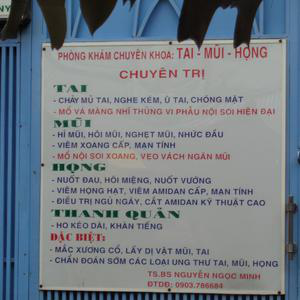 NY
PHÒNG KHÁM CHUYÊN KHOA: TAI - MŨI - HỌNG
CHUYÊN TRỊ
TAI
- CHẢY MỦ TAI, NGHE KÉM, Ù TAI, CHÓNG MẶT
- MỔ VÁ MÀNG NHĨ THỦNG VI PHẪU NỘI SOI HIỆN ĐẠI
MŨI
- HỈ MŨI, HÔI MŨI, NGHẸT MŨI, NHỨC ĐẦU
- VIÊM XOANG CẤP, MẠN TÍNH
- MỔ NỘI SOI XOANG, VẸO VÁCH NGĂN MŨI
HỌNG
- NUỐT ĐAU, HÔI MIỆNG, NUỐT VƯỚNG
- VIÊM HỌNG HẠT, VIÊM AMIDAN CẤP, MẠN TÍNH
- ĐIỀU TRỊ NGỦ NGÁY, CẮT AMIDAN KỸ THUẬT CAO
THANH QUẢN
- HO KÉO DÀI, KHÀN TIẾNG
ĐẶC BIỆT:
- MẮC XƯƠNG CỔ, LẤY DỊ VẬT MŨI, TAI
- CHẨN ĐOÁN SỚM CÁC LOẠI UNG THƯ TAI, MŨI, HỌNG
TS.BS NGUYỄN NGỌC MINH
ĐTDĐ: 0903.786684